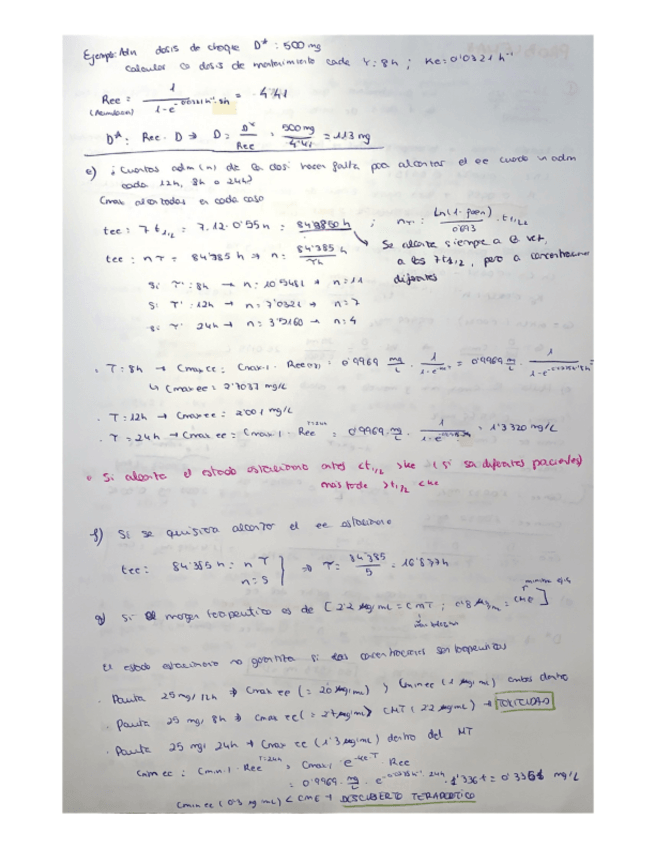 Ejemplo: Adm dosis de choque D* : 500 mg
Calcular la dosis de mantenimiento cada τ: 8h ; Ke: 0'0321 h⁻¹
Ree = 1 / 1-e^-0'0321h⁻¹·8h = 4'41
(Acumulación)
D* : Ree · D → D = D* / Ree = 500 mg / 4'41 = 113 mg
e) ¿Cuantas adm (n) de la dosis hacen falta para alcanzar el ee cuando un adm
cada 12h, 8h o 24h?
Cmax alcanzadas en cada caso
tee : 7 t1/2 = 7 · 12'055h = 84'3850 h ; nτ : Ln(1-fee) / 0'693 · t1/2
tee : nτ = 84'385 h → n: 84'385 h / τh
→ Se alcanza siempre a la vez,
a los 7t1/2, pero a concentraciones
diferentes
Si τ : 8h → n: 10'5481 → n = 11
Si τ : 12h → n = 7'0321 → n = 7
Si τ 24h → n: 3'5160 → n = 4
· τ : 8h → Cmax ee : Cmax1 · Ree = 0'9969 mg/L · 1 / 1-e = 0'9969 · 1 / 1-e
↳ Cmax ee = 2'7037 mg/L
· τ = 12h → Cmax ee = 2'001 mg/L
· τ = 24h → Cmax ee = Cmax1 · Ree τ=24h = 0'9969 mg/L · 1 / 1-e = 1'3320 mg/L
Si alcanza el estado estacionario antes <t1/2 >ke (si son diferentes pacientes)
mas tarde >t1/2 <ke
f) Si se quisiera alcanzar el ee estacionario
tee : 84'385 h = nτ
n = 5 } ⇒ τ = 84'385 / 5 = 16'877h
g) Si el margen terapeutico es de [2'2 µg/mL = CMT ; 0'8 µg/mL = CME]
minima eficaz
El estado estacionario no garantiza si las concentraciones son terapeuticas
· Pauta 25 mg/12h ⇒ Cmax ee (= 2'0 µg/mL) y Cmin ee (1 µg/mL) ambas dentro
· Pauta 25 mg/8h ⇒ Cmax ee (= 2'7 µg/mL) > CMT (2'2 µg/mL) → TOXICIDAD
· Pauta 25 mg/24h → Cmax ee (1'3 µg/mL) dentro del MT
Cmin ee : Cmin1 · Ree τ=24h = Cmax1 · e^-ke·τ · Ree
= 0'9969 mg/L · e · 1'336 = 0'3361 mg/L
Cmin ee (0'3 µg/mL) < CME → DESCUBIERTO TERAPEUTICO